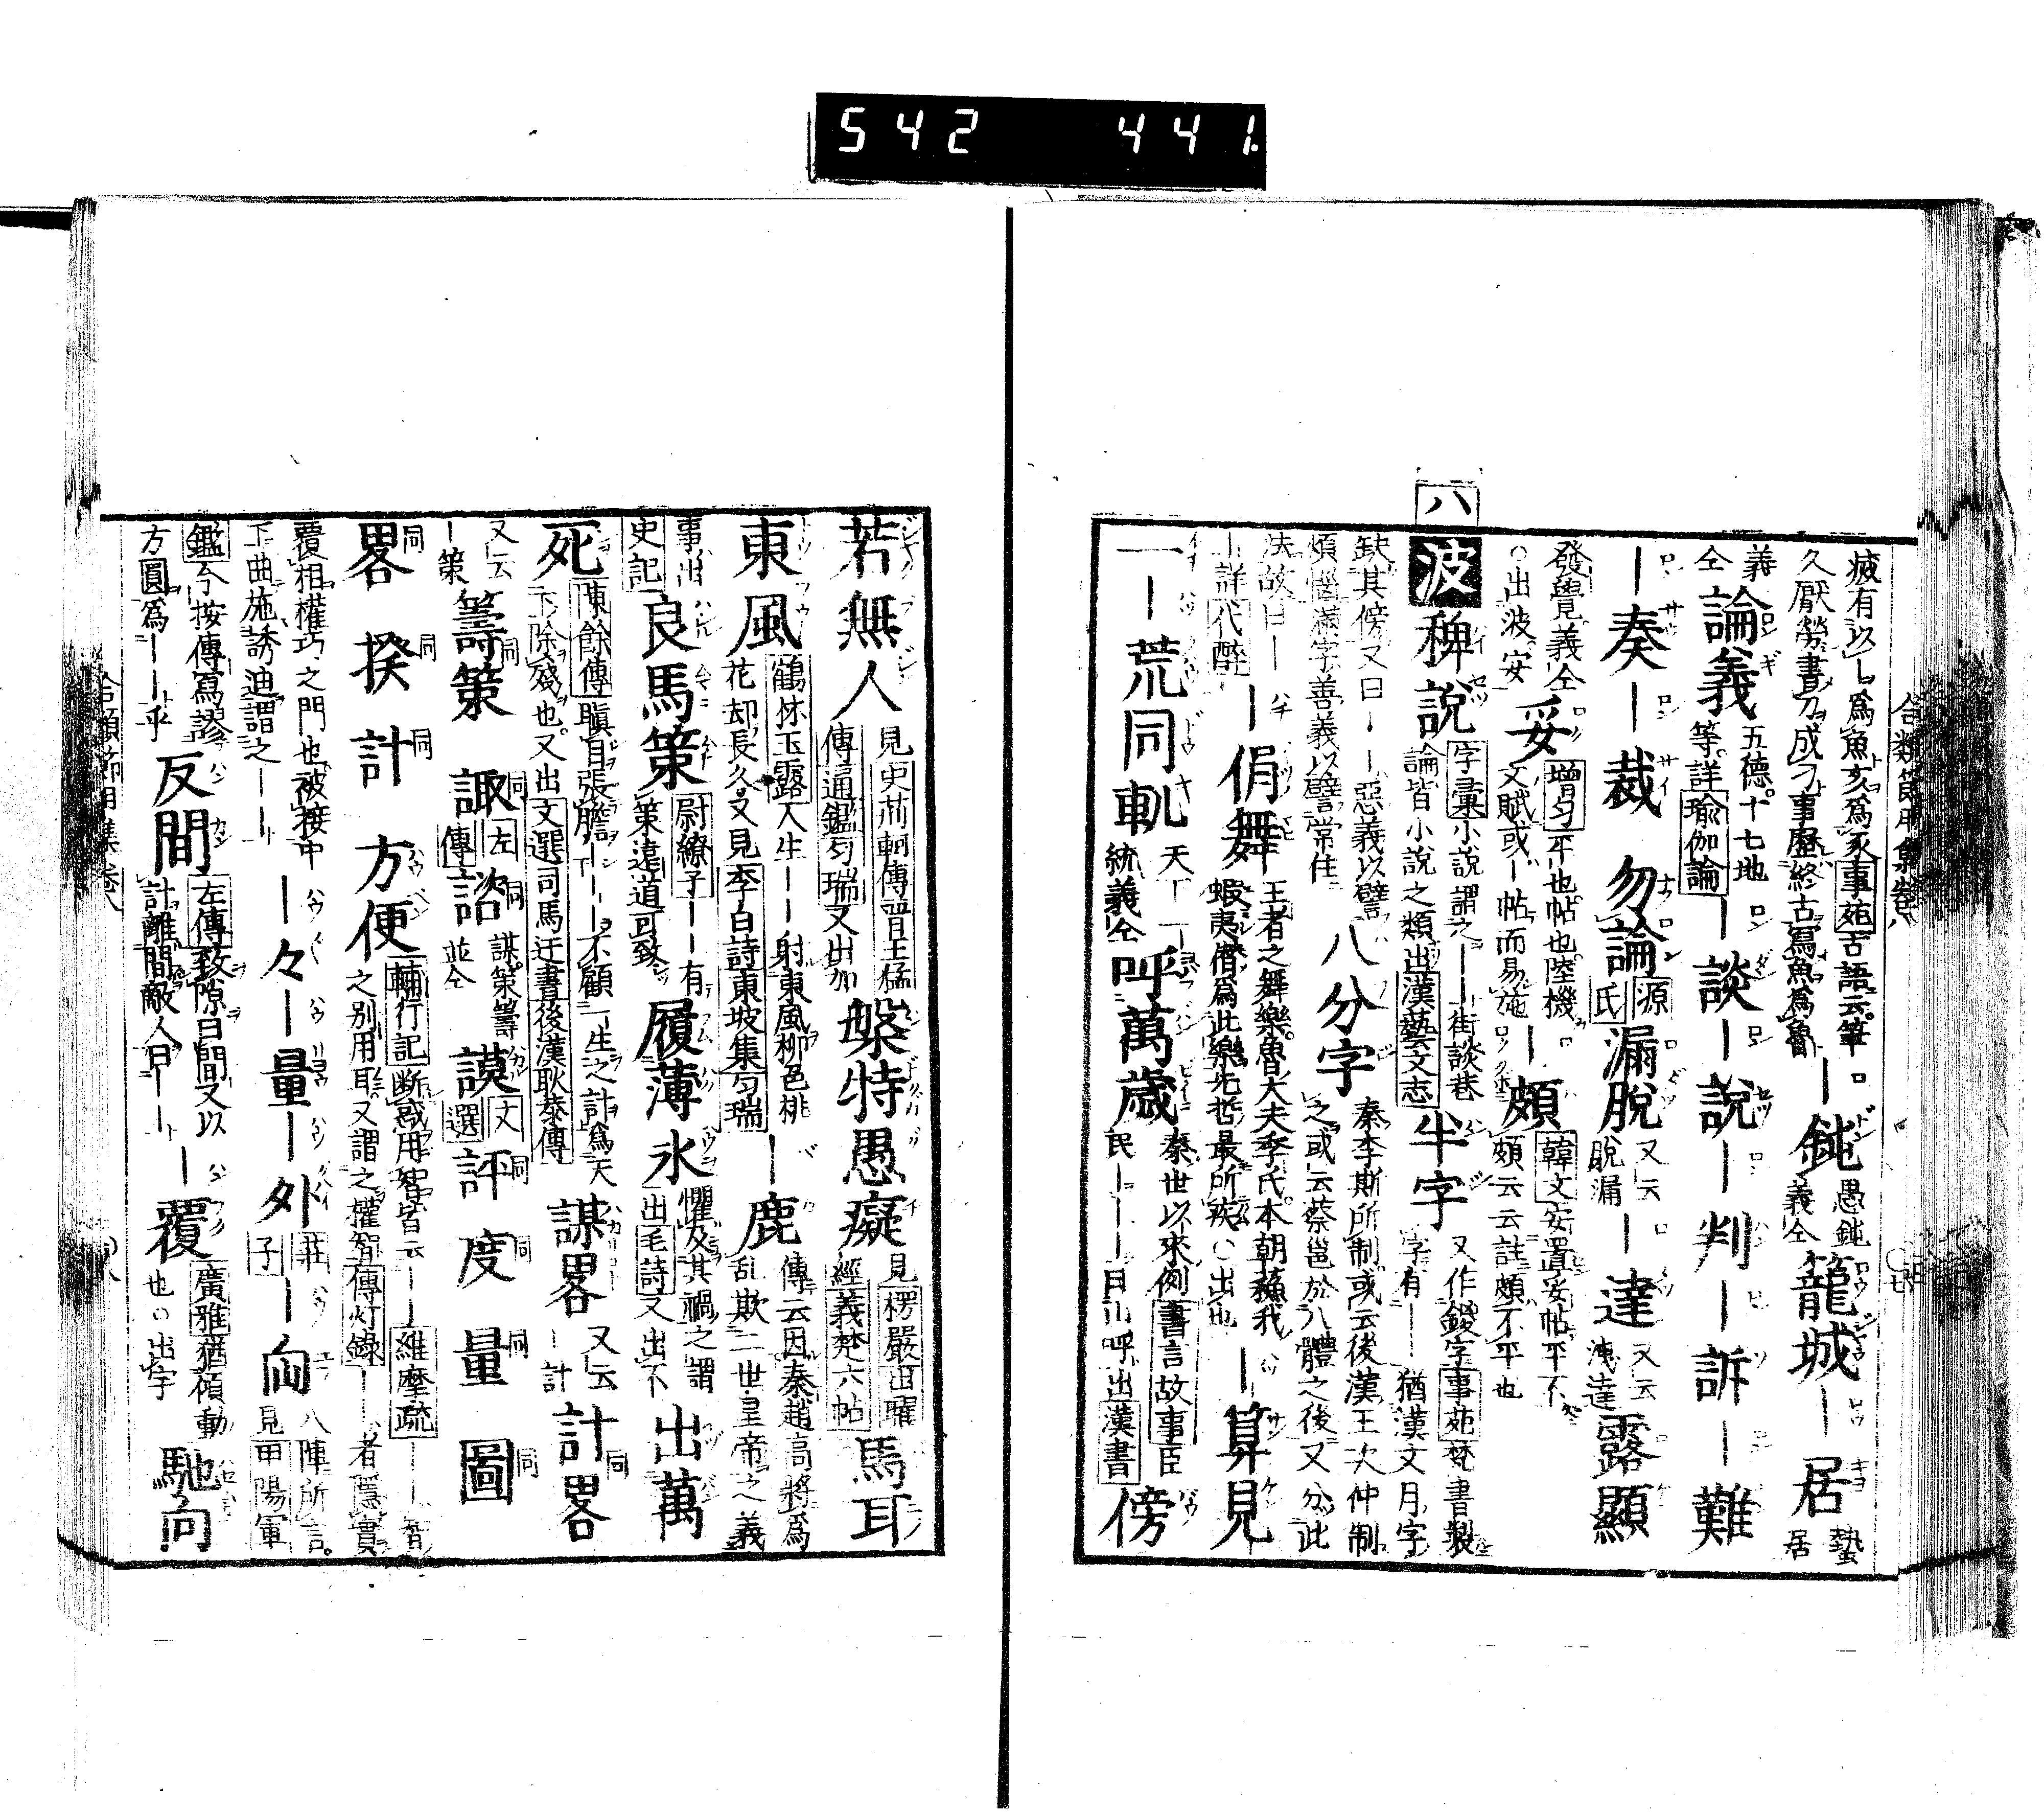 542 441.
合類節用集卷八
疲有以レ爲魚亥爲豕事苑古語云筆
久厭勞書刀成刁事歷終古寫魚爲魯
―鈍 愚鈍義仝 籠城 ―居 蟄居
義仝 論義 五德十七地等詳瑜伽論 ―談 ―說 ―判 ―訴 ―難
―奏 ―裁 勿論 源氏 漏脫 又云脫漏 ―達 又云洩達 露顯
發覺義仝○出波安 妥 增匀平也帖也陸機文賦或―帖而易施 ―頗 韓文安置妥帖平不頗云云註頗不平也
八
波 稗說 字彙小說謂之――街談巷論皆小說之類出漢藝文志 半字 又作錣字事苑梵書製字有――猶漢文月字
缺其傍又曰――惡義以譬煩惱滿字善義以譬常住 八分字 秦李斯所制或云後漢王次仲制之或云蔡邕於八體之後又分此
法故曰――詳代醉 ―佾舞 王者之舞樂魯大夫季氏本朝蘇我蝦夷僭爲此樂先哲最所疾○出也 ―算見
一―荒同軌 天下一統義仝 呼萬歲 秦世以來例書言故事臣民――――日山呼出漢書 傍
若無人 見史荊軻傳晋王猛傳通鑑匀瑞又出加 槃特愚癡 見楞嚴由曜經義楚六帖 馬耳
東風 鶴林玉露人生――射東風柳色桃花却長久又見李白詩東坡集匀瑞 ―鹿 傳云因秦趙高將爲乱欺二世皇帝之義
事出史記 良馬策 尉繚子――有策遠道可致 履薄氷 懼及其禍之謂出毛詩又出不 出萬
死 陳餘傳瞋目張膽――不顧一生之計爲天下除殘也又出文選司馬迁書後漢耿恭傳 謀畧 又云―計 計畧
又云―策 籌策 諏 左傳 諮 謀策籌並仝 謨 文選 評 度 量 圖
畧 揆 計 方便 輔行記断惑用智皆云――維摩疏――智之別用耳又謂之權智傳灯錄――者隱實
覆相權巧之門也被接中下曲施誘迪謂之―― ―々 ―量 ―外 莊子 ―向 八陣所言見甲陽軍
鑑今按傳寫謬方圓爲――乎 反間 左傳致隙曰間又以計離間敵人曰―― ―覆 廣雅猶傾動也○出宇 馳向
合類節用集卷八